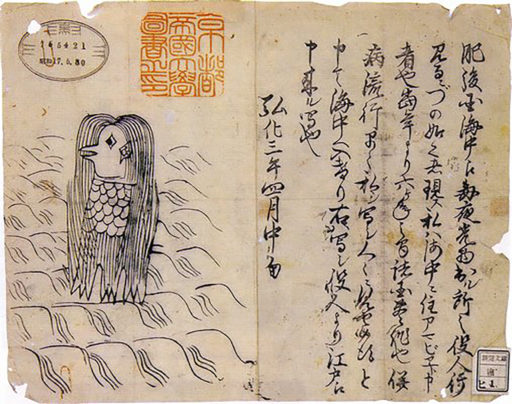 肥後国海中江毎夜光物出ル所之役人行
見るニづの如之者現ス私ハ海中ニ住アマビヱト申
者也当年より六ヶ年之間諸国豊作也併
病流行早々私ヲ写シ人々ニ見せ候得と
申て海中へ入けり右写シ役人より江戸江
申来ル写也
弘化三年四月中旬
京都
帝國大學
圖書之印
165421
昭和17.6.30